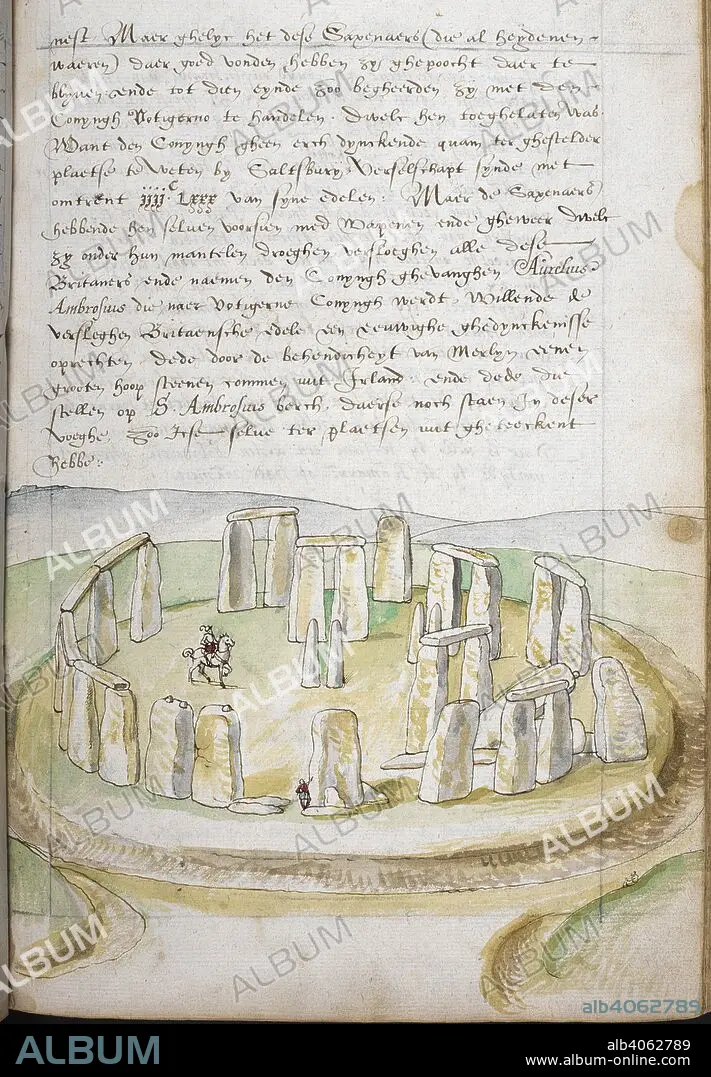 nest Maer ghelyc het dese Saxenaers (die al heydenen
waeren) daer goed vonden hebben zy ghepoocht daer te
blyven ende tot dien eynde zoo begheerden zy met den
Conyngh Votigerno te handelen. dwelc hen toeghelaten was.
Want den Conyngh gheen erch dynckende quam ter ghestelder
plaetse te weten by Saltsbury Verselschapt synde met
omtrent iiij.c Lxxx van syne edelen: Maer de Saxenaers
hebbende hen selven voorsien med Wapenen ende gheweer dwelc
zy onder hun mantelen droeghen versloeghen alle dese
Britaners ende naemen den Conyngh ghevanghen Aurelius
Ambrosius die naer Votigerne Conyngh werdt. Willende de
versleghen Britaensche edele een eeuwighe ghedynckenisse
oprechten dede door de behendicheyt van Merlyn eenen
grooten hoop steenen commen uit Irland: ende dede die
stellen op S. Ambrosius berch, daerse noch staen In deser
voeghe, zoo Icse selve ter plaetsen uit gheteeckent
hebbe:
ALBUM
alb4062789
ALBUM
alb4062789
www.album-online.com